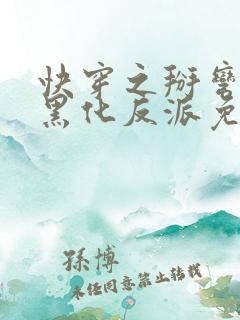 快穿之掰弯
黑化反派免
孫博
未经同意禁止转载